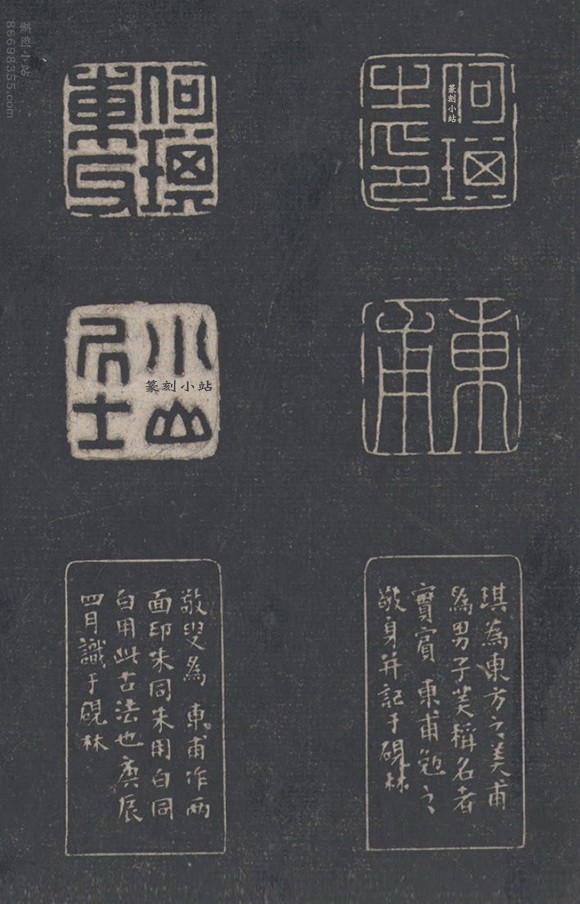 何琪
之印
篆刻小站
何琪
東父
篆刻小站
86698355.com
東甫
小山
居士
篆刻小站
琪為東方之美甫
為男子美稱名者
實賓東甫勉之
敬身并記于硯林
敬叟為東甫作兩
面印朱同朱用白同
白用此古法也庚辰
四月識于硯林